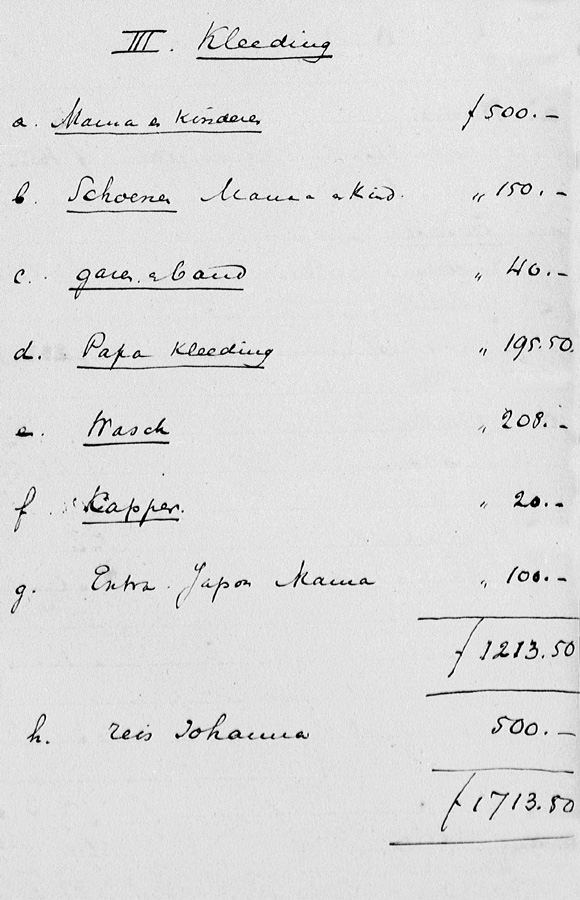 III. Kleeding
a. Mama en Kinderen ƒ 500.–
b. Schoenen Mama en Kind. „ 150.–
c. garen en band „ 40.–
d. Papa Kleeding „ 195.50
e. Wasch „ 208.–
f. Kapper. „ 20.–
g. Extra Japon Mama „ 100.–
ƒ 1213.50
h. reis Johanna 500.–
ƒ 1713.50